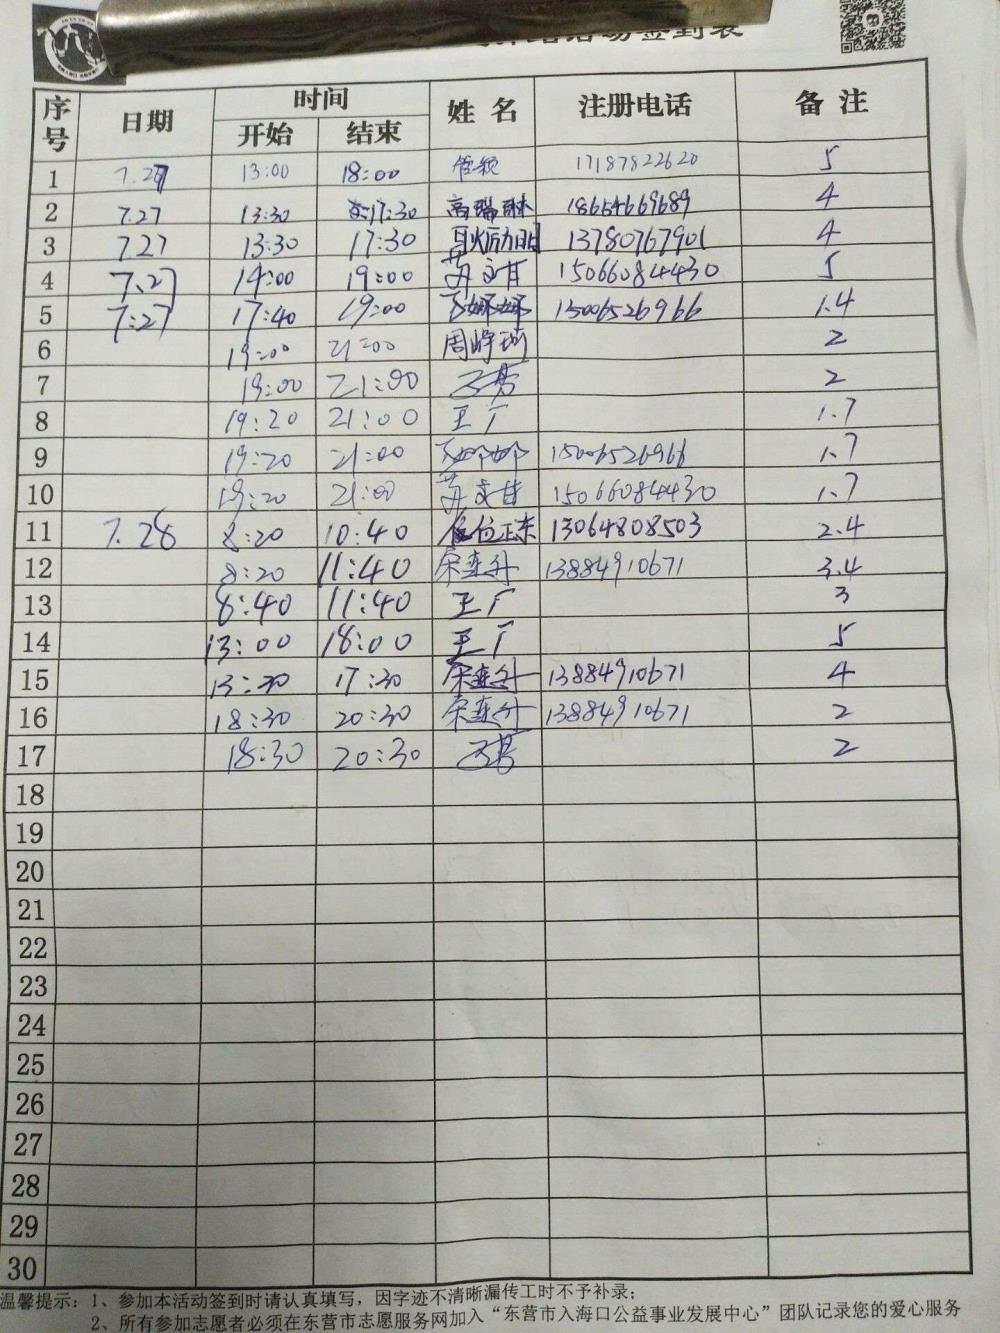 活动签到表
序号 日期 时间 姓名 注册电话 备注
开始 结束
1 7.27 13:00 18:00 管颖 17187822620 5
2 7.27 13:30 17:30 高瑞琳 18654669689 4
3 7.27 13:30 17:30 13780767901 4
4 7.27 14:00 19:00 苏文甘 15066084430 5
5 7.27 17:40 19:00 15006526966 1.4
6 19:00 21:00 周峥琦 2
7 19:00 21:00 2
8 19:20 21:00 王广 1.7
9 19:20 21:00 15006526966 1.7
10 19:20 21:00 苏文甘 15066084430 1.7
11 7.28 8:20 10:40 位正东 13064808503 2.4
12 8:20 11:40 宋连升 13884910671 3.4
13 8:40 11:40 王广 3
14 13:00 18:00 王广 5
15 13:30 17:30 宋连升 13884910671 4
16 18:30 20:30 宋连升 13884910671 2
17 18:30 20:30 2
18
19
20
21
22
23
24
25
26
27
28
29
30
温馨提示：1、参加本活动签到时请认真填写，因字迹不清晰漏传工时不予补录；
2、所有参加志愿者必须在东营市志愿服务网加入“东营市入海口公益事业发展中心”团队记录您的爱心服务